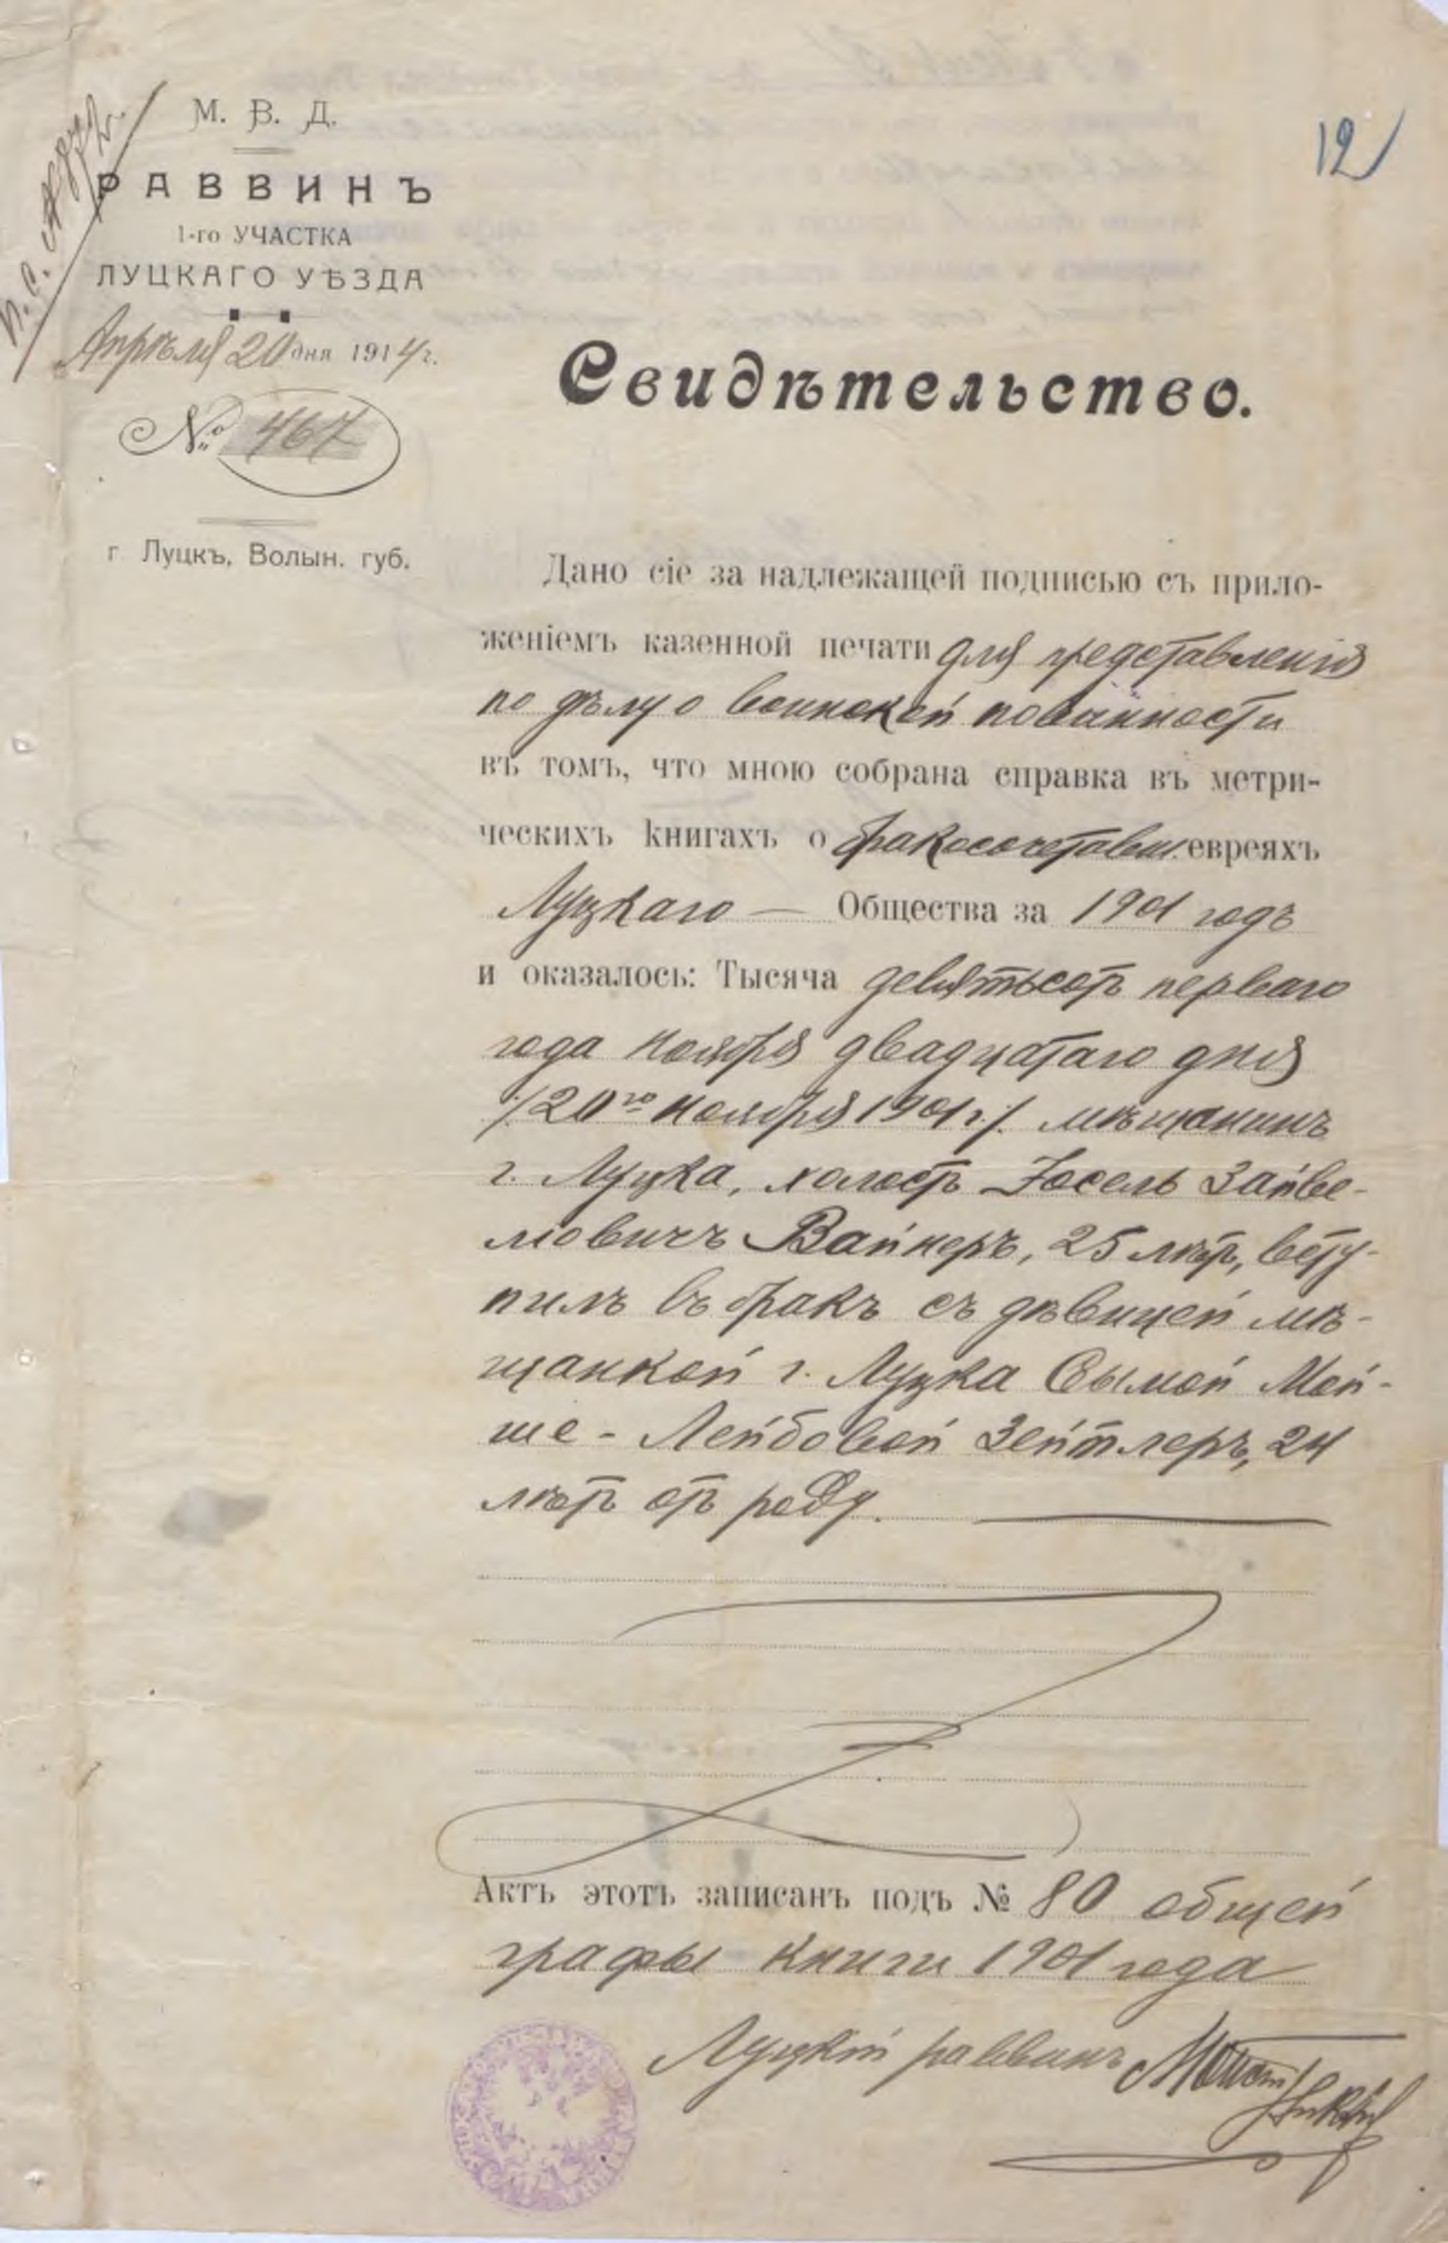 П. С. 
М. В. Д.
РАВВИНЪ
1-го УЧАСТКА
ЛУЦКАГО УѢЗДА
Апрѣля 20 дня 1914 г.
№ 467
г. Луцкъ, Волын. губ.
12
Свидѣтельство.
Дано сіе за надлежащей подписью съ прило-
женіемъ казенной печати для представленія
по дѣлу о воинской повинности
въ томъ, что мною собрана справка въ метри-
ческихъ книгахъ о бракосочетавш. евреяхъ
Луцкаго — Общества за 1901 годъ
и оказалось: Тысяча девятьсотъ перваго
года ноября двадцатаго дня
/20го ноября 1901 г./ мѣщанинъ
г. Луцка, холостъ Іосель Зайве-
ловичъ Вайнеръ, 25 лѣтъ, всту-
пилъ въ бракъ съ дѣвицей мѣ-
щанкой г. Луцка Сымой Мой-
ше-Лейбовой Зейтлеръ, 24
лѣтъ отъ роду.
Актъ этотъ записанъ подъ № 80 общей
графы книги 1901 года
Луцкій раввинъ